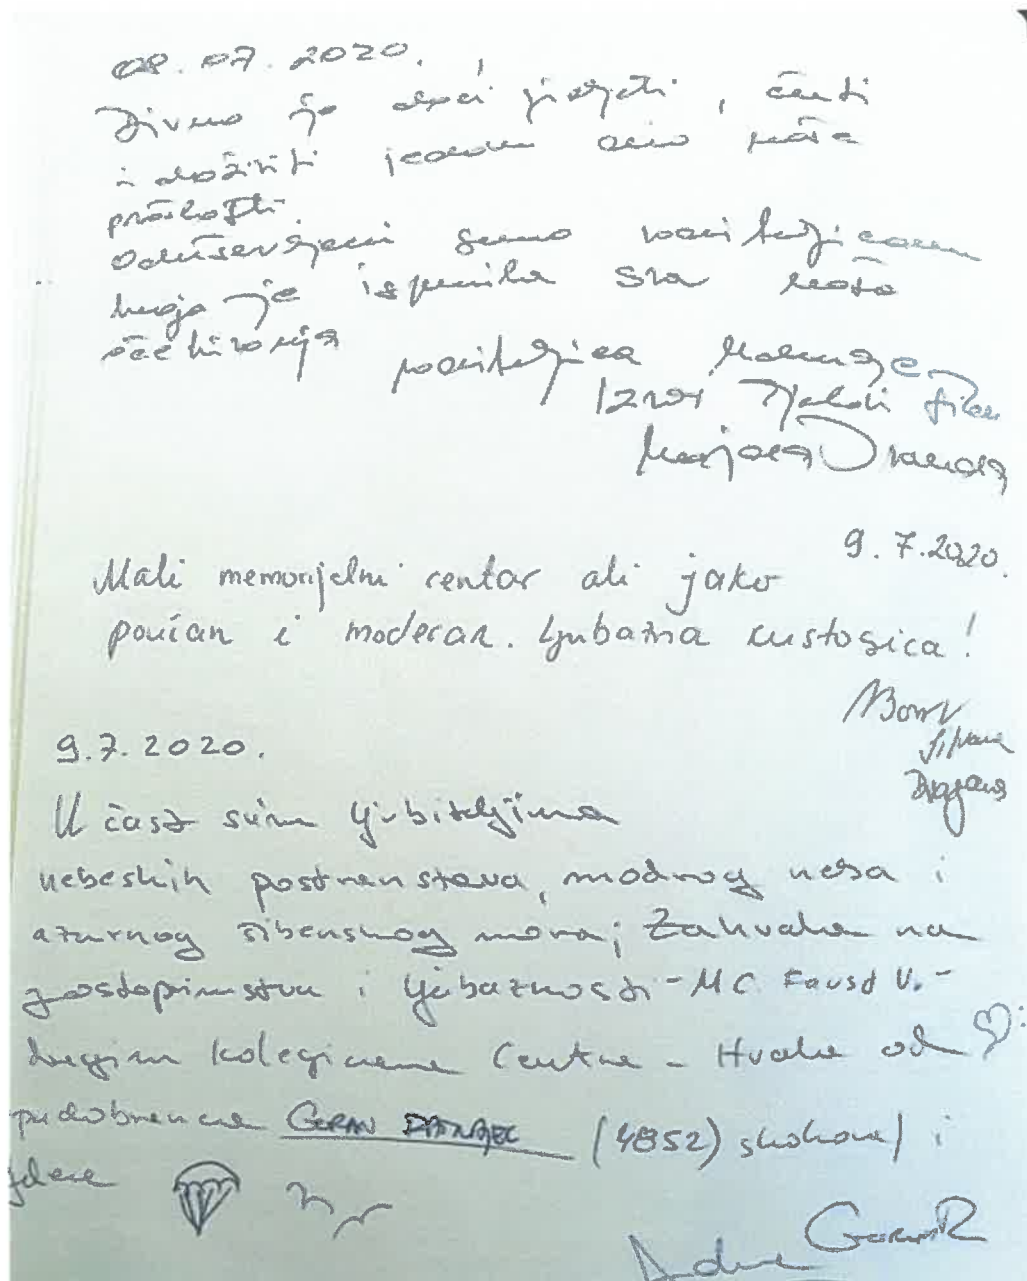 08.07.2020.
Divno je doći, vidjeti, čuti
i doživiti jedan dio naše
prošlosti.
Oduševljeni smo voditeljicom
koja je ispunila sva naša
očekivanja
voditeljica
9.7.2020.
Mali memorijalni centar ali jako
poučan i moderan. Ljubazna kustosica!
Dragana
9.7.2020.
U čast svim ljubiteljima
nebeskih postranstava, modrog neba i
azurnog šibenskog mora; Zahvala na
gostoprimstvu i ljubaznosti - MC Faust V. -
dragim kolegicama Centra - Hvala od
padobranca GORAN (4852) skokova / i